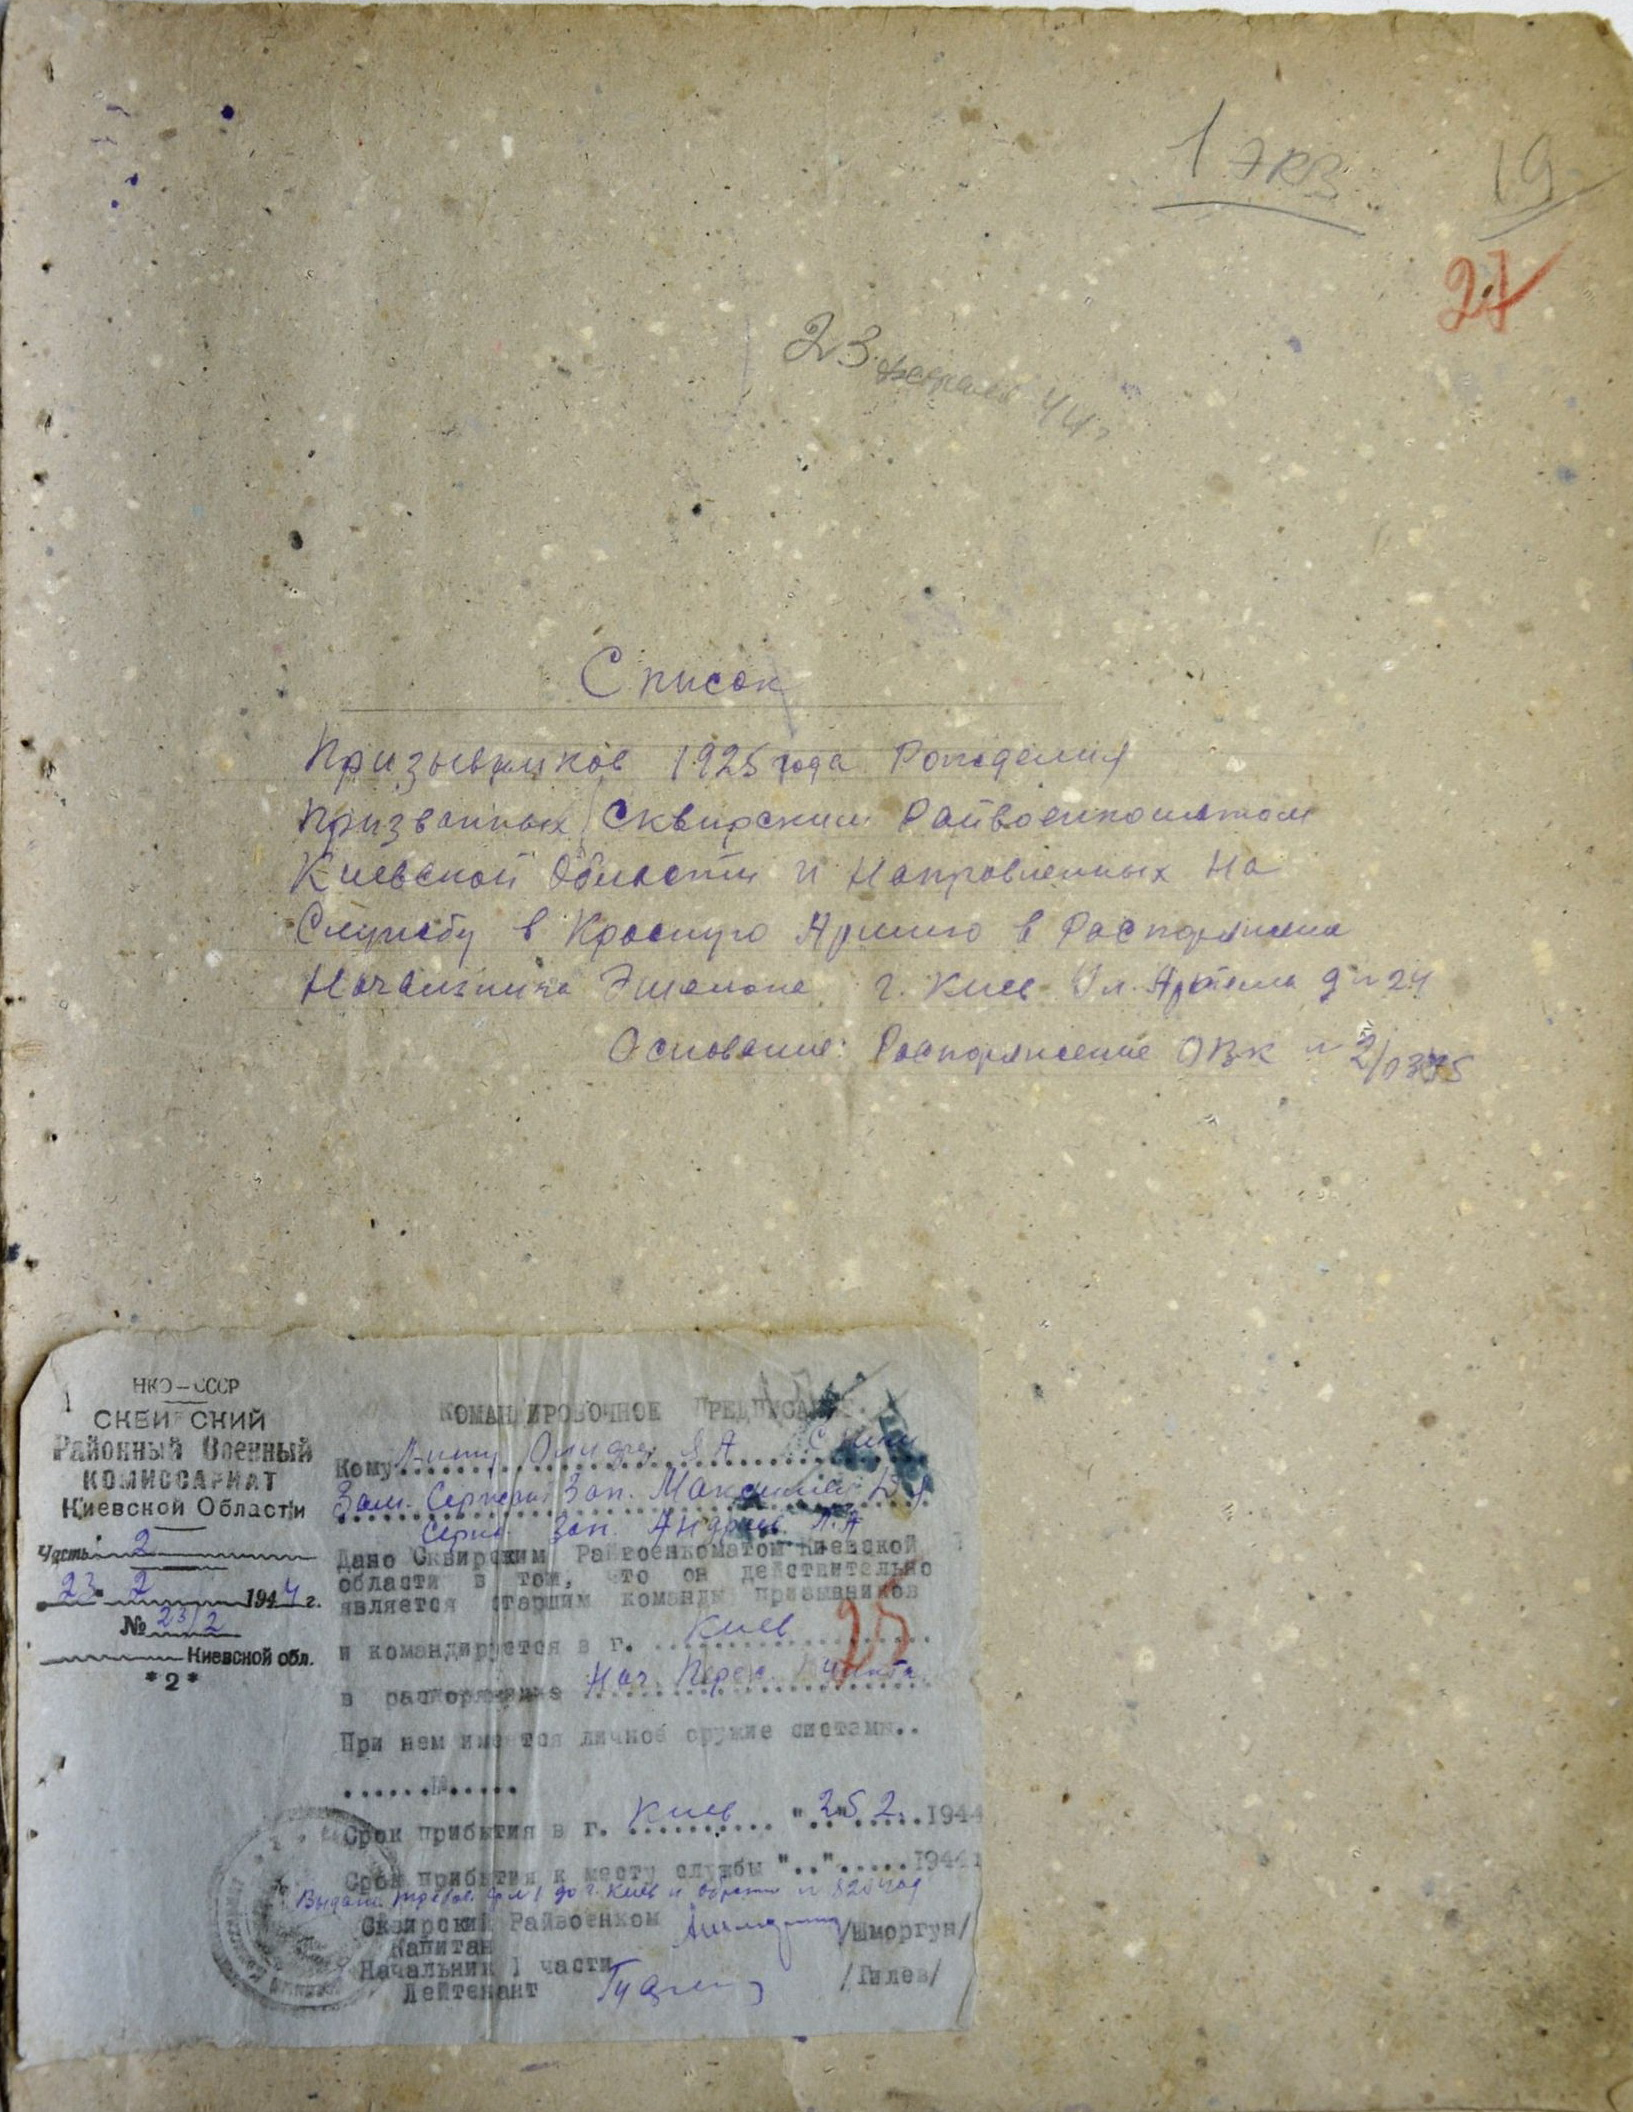 1 экз
19
27
23 февраля 44 г
Список
Призывников 1925 года Рождения
Призванных Сквирским Райвоенкоматом
Киевской Области и Направленных На
Службу в Красную Армию в Распоряжение
Начальника Эшелона г. Киев Ул. Артема д № 24
Основание: Распоряжение ОВК № 2/
НКО – СССР
СКВИРСКИЙ
Районный Военный
КОМИССАРИАТ
Киевской Области
Часть 2
23 2 1944 г.
№ 23/2
Киевской обл.
*2*
КОМАНДИРОВОЧНОЕ ПРЕДПИСАНИЕ.
Кому
Зам. Сержант Зап.
Серж. Зап. Андреев
Дано Сквирским Райвоенкоматом Киевской
области в том, что он действительно
является старшим команды призывников
27
и командируется в г. Киев
в распоряжение Нач. Перес. Пункта
При нем имеется личное оружие системы..
......№.....
Срок прибытия в г. Киев "25" 2. 1944
Срок прибытия к месту службы "..".....1944
до г. Киев и обратно №
Сквирский Райвоенком /Шморгун/
Капитан
Начальник 1 части /Гилев/
Лейтенант